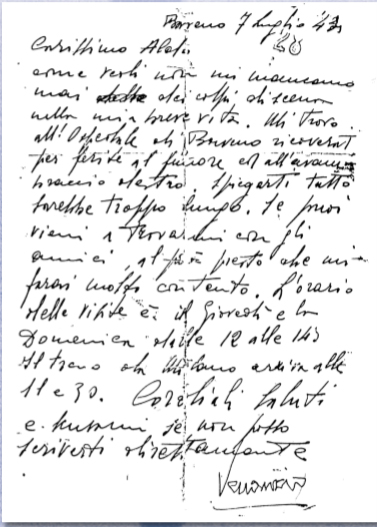 Baveno 7 Luglio 43
Carissimo
come vedi non mi mancano
mai dei colpi di scena
nella mia breve vita. Mi trovo
all'Ospedale di Baveno ricoverato
per ferite al femore ed all'avam
braccio destro. Spiegarti tutto
sarebbe troppo lungo. Se puoi
vieni a trovarmi con gli
amici, al più presto che mi
farai molto contento. L'orario
delle visite è il Giovedì e la
Domenica dalle 12 alle 14
Il treno da Milano arriva alle
11 e 30. Cordiali Saluti
e scusami se non posso
scriverti direttamente